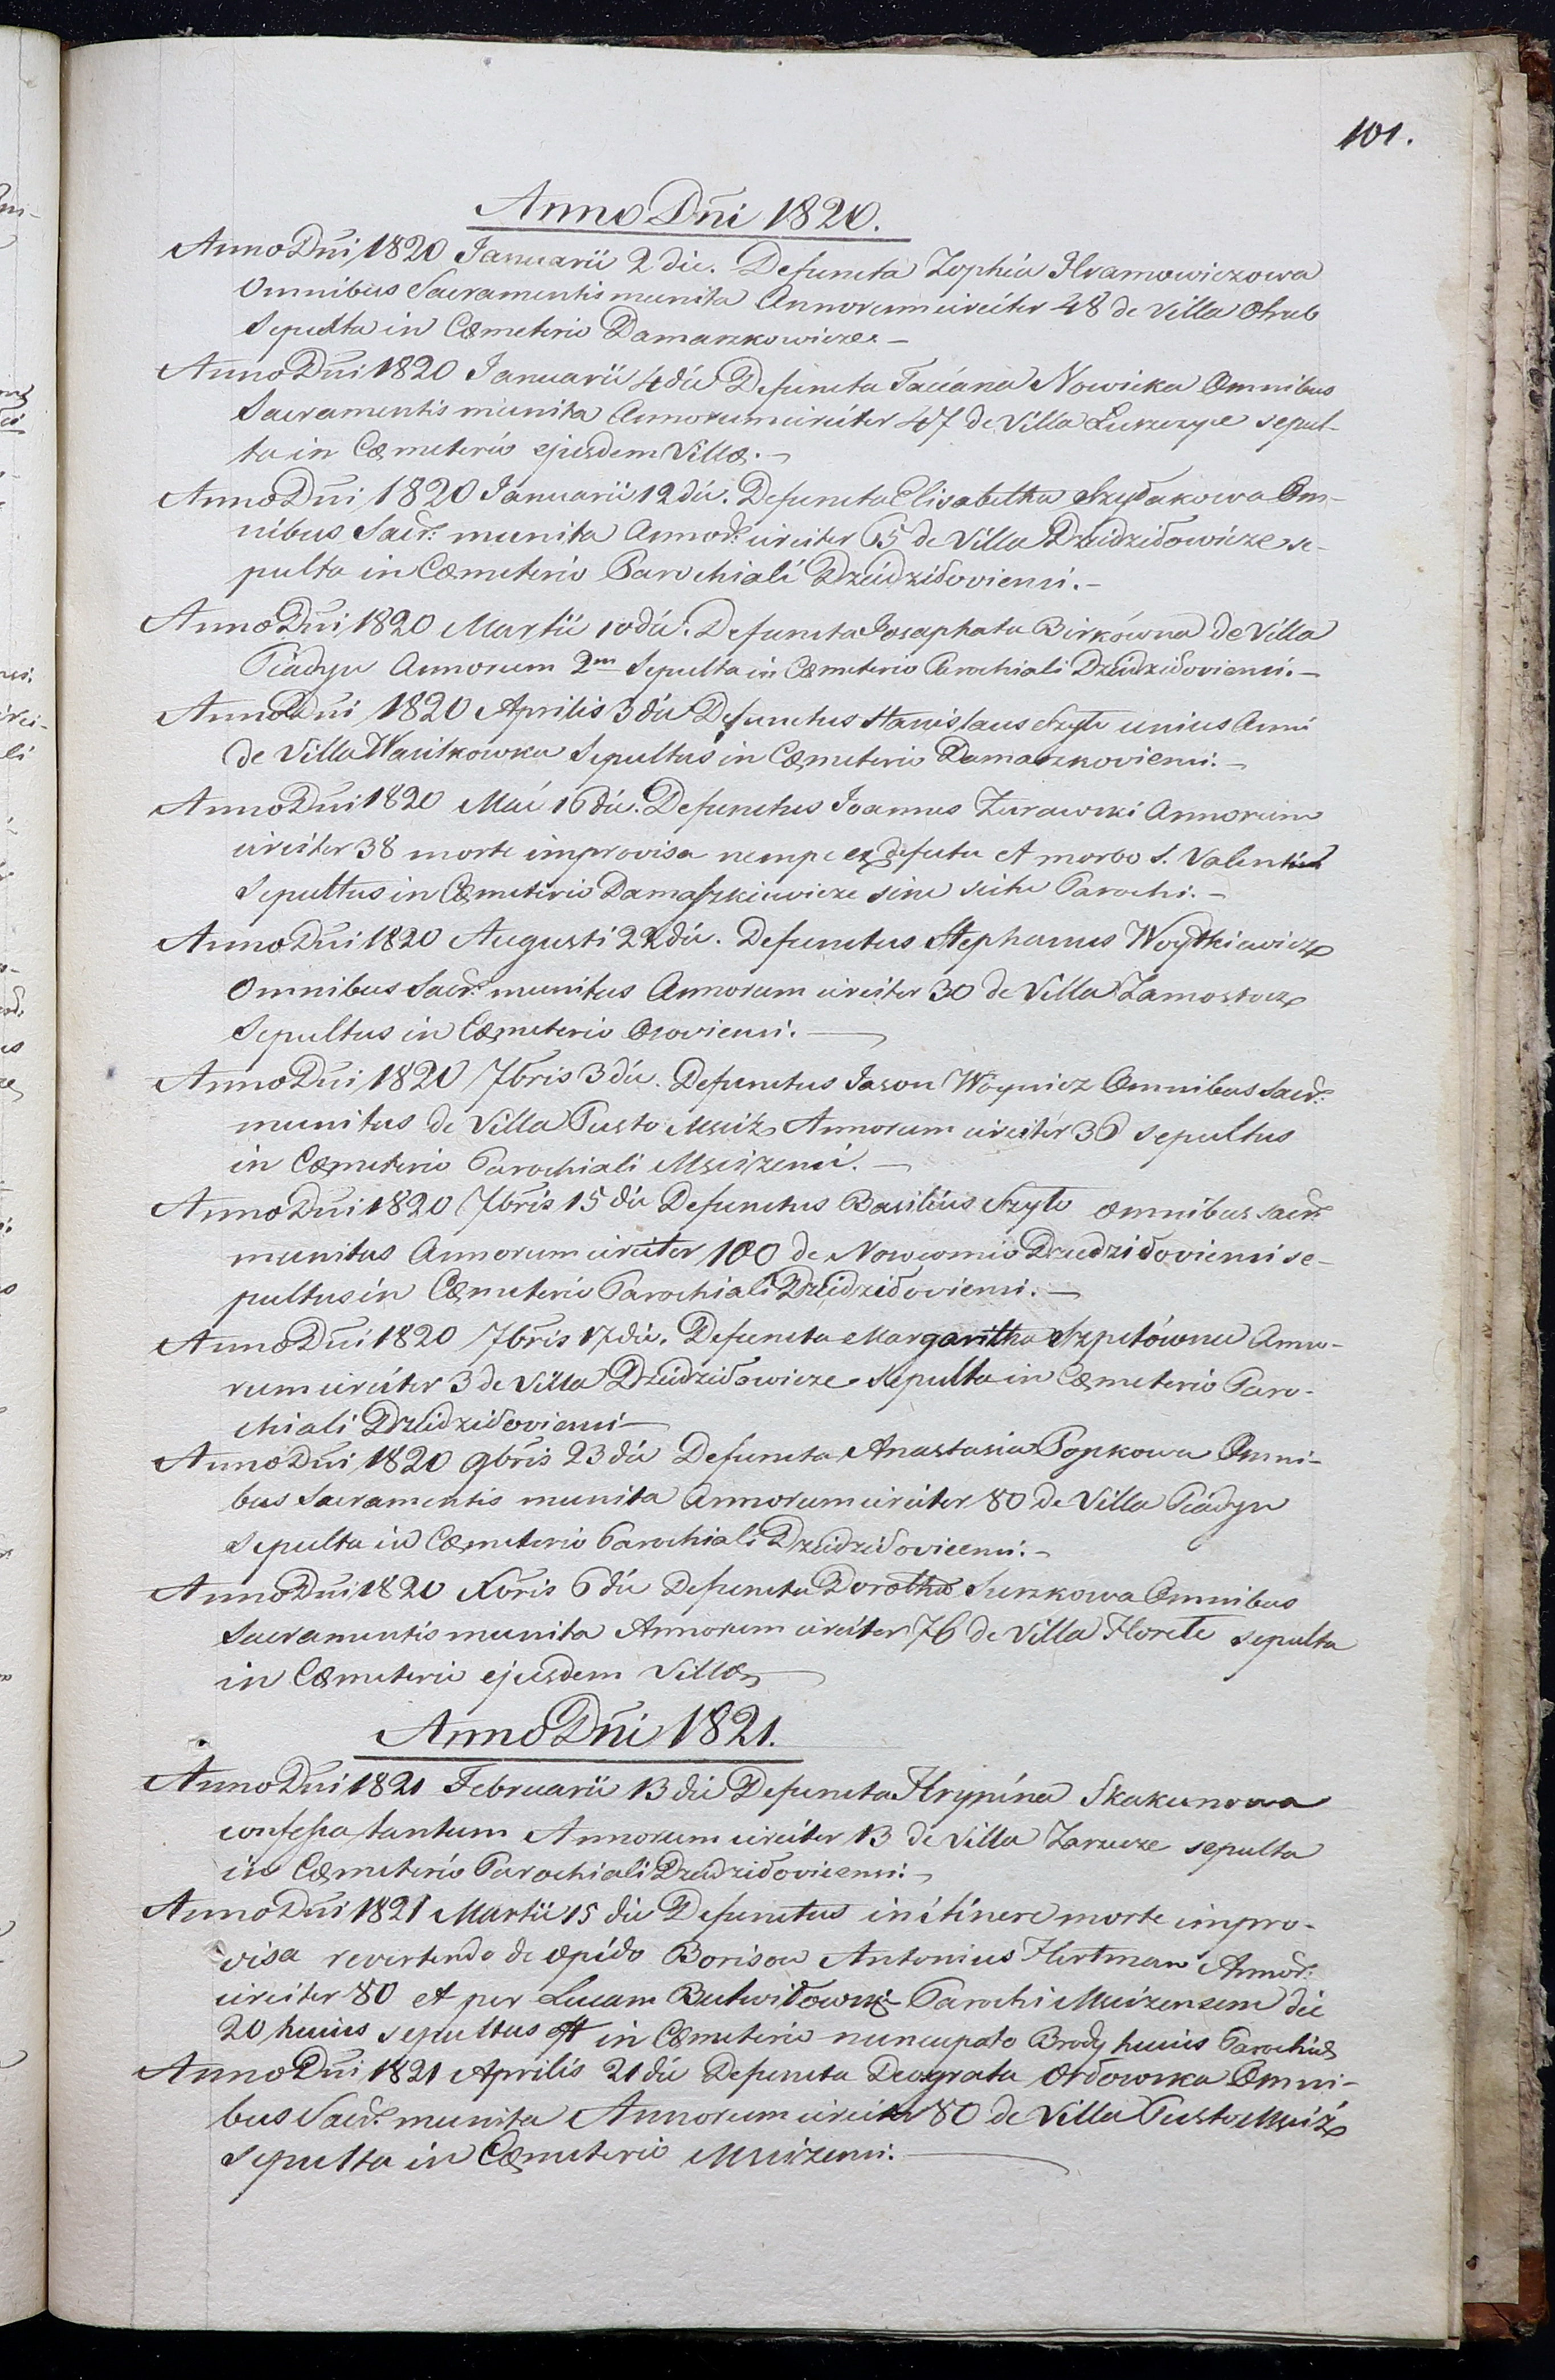 101.
Anno Dñi 1820.
Anno Dñi 1820 Januarii 2 die. Defuncta Zophia Hramowiczowa
Omnibus Sacramentis munita Annorum circiter 48 de Villa Otrub
Sepulta in Cæmeterio Damaszkowicze. –
Anno Dñi 1820 Januarii 4 die Defuncta Taciana Nowicka Omnibus
Sacramentis munita Annorum circiter 47 de Villa Luszczyce sepul-
ta in Cæmeterio ejusdem Villæ. –
Anno Dñi 1820 Januarii 12 die. Defuncta Elisabetha Szydakowa Om-
nibus Sacr: munita Annor: circiter 65 de Villa Dziedziłowicze se-
pulta in Cæmeterio Parochiali Dziedziłoviensi. –
Anno Dñi 1820 Martii 10 die. Defuncta Josaphata Birkówna de Villa
Piadyn Annorum 2m Sepulta in Cæmeterio Parochiali Dziedziłoviensi. –
Anno Dñi 1820 Aprilis 3 die Defunctus Stanislaus Szyło unius Anni
de Villa Wasilkowka Sepultus in Cæmeterio Damaszkoviensi. –
Anno Dñi 1820 Maii 16 die. Defunctus Joannes Zurawski Annorum
circiter 38 morte improvisa nempe ex defectu et morbo S. Valentini
Sepultus in Cæmeterio Damaszkiewicze sine scitu Parochi. –
Anno Dñi 1820 Augusti 22 die. Defunctus Stephanus Woytkiewicz
Omnibus Sacr: munitus Annorum circiter 30 de Villa Zamostocz
Sepultus in Cæmeterio Osoviensi. –
Anno Dñi 1820 7bris 3 die. Defunctus Jason Woynicz Omnibus Sacr:
munitus de Villa Pusto Mściż Annorum circiter 36 sepultus
in Cæmeterio Parochiali Mścizensi. –
Anno Dñi 1820 7bris 15 die Defunctus Basilius Szyło omnibus sacr:
munitus Annorum circiter 100 de Nowosmio Dziedziłoviensi se-
pultus in Cæmeterio Parochiali Dziedziłoviensi. –
Anno Dñi 1820 7bris 17 die. Defuncta Margaritha Szpetówna Anno-
rum circiter 3 de Villa Dziedziłowicze Sepulta in Cæmeterio Paro-
chiali Dziedziłoviensi –
Anno Dñi 1820 9bris 23 die Defuncta Anastasia Popkowa Omni-
bus Sacramentis munita Annorum circiter 80 de Villa Piadyn
sepulta in Cæmeterio Parochiali Dziedziłoviensi. –
Anno Dñi 1820 Xbris 6 die Defuncta Dorothea Suszkowa Omnibus
Sacramentis munita Annorum circiter 76 de Villa Horełe sepulta
in Cæmeterio ejusdem Villæ –
Anno Dñi 1821.
Anno Dñi 1821 Februarii 13 die Defuncta Hrypina Skakunowa
confessa tantum Annorum circiter 13 de Villa Zarzecze sepulta
in Cæmeterio Parochiali Dziedziłoviensi. –
Anno Dñi 1821 Martii 15 die Defunctus in itinere morte impro-
visa revertendo de opido Borisow Antonius Hertman Annor:
circiter 80 et per Lucam Butwiłowski Parochi Mscizensem die
20 huius sepultus est in Cæmeterio nuncupato Brody huius Parochiæ
Anno Dñi 1821 Aprilis 21 die Defuncta Deograta Orłowska Omni-
bus Sacr: munita Annorum circiter 80 de Villa Pusto Mściż
sepulta in Cæmeterio Mścizensi. –